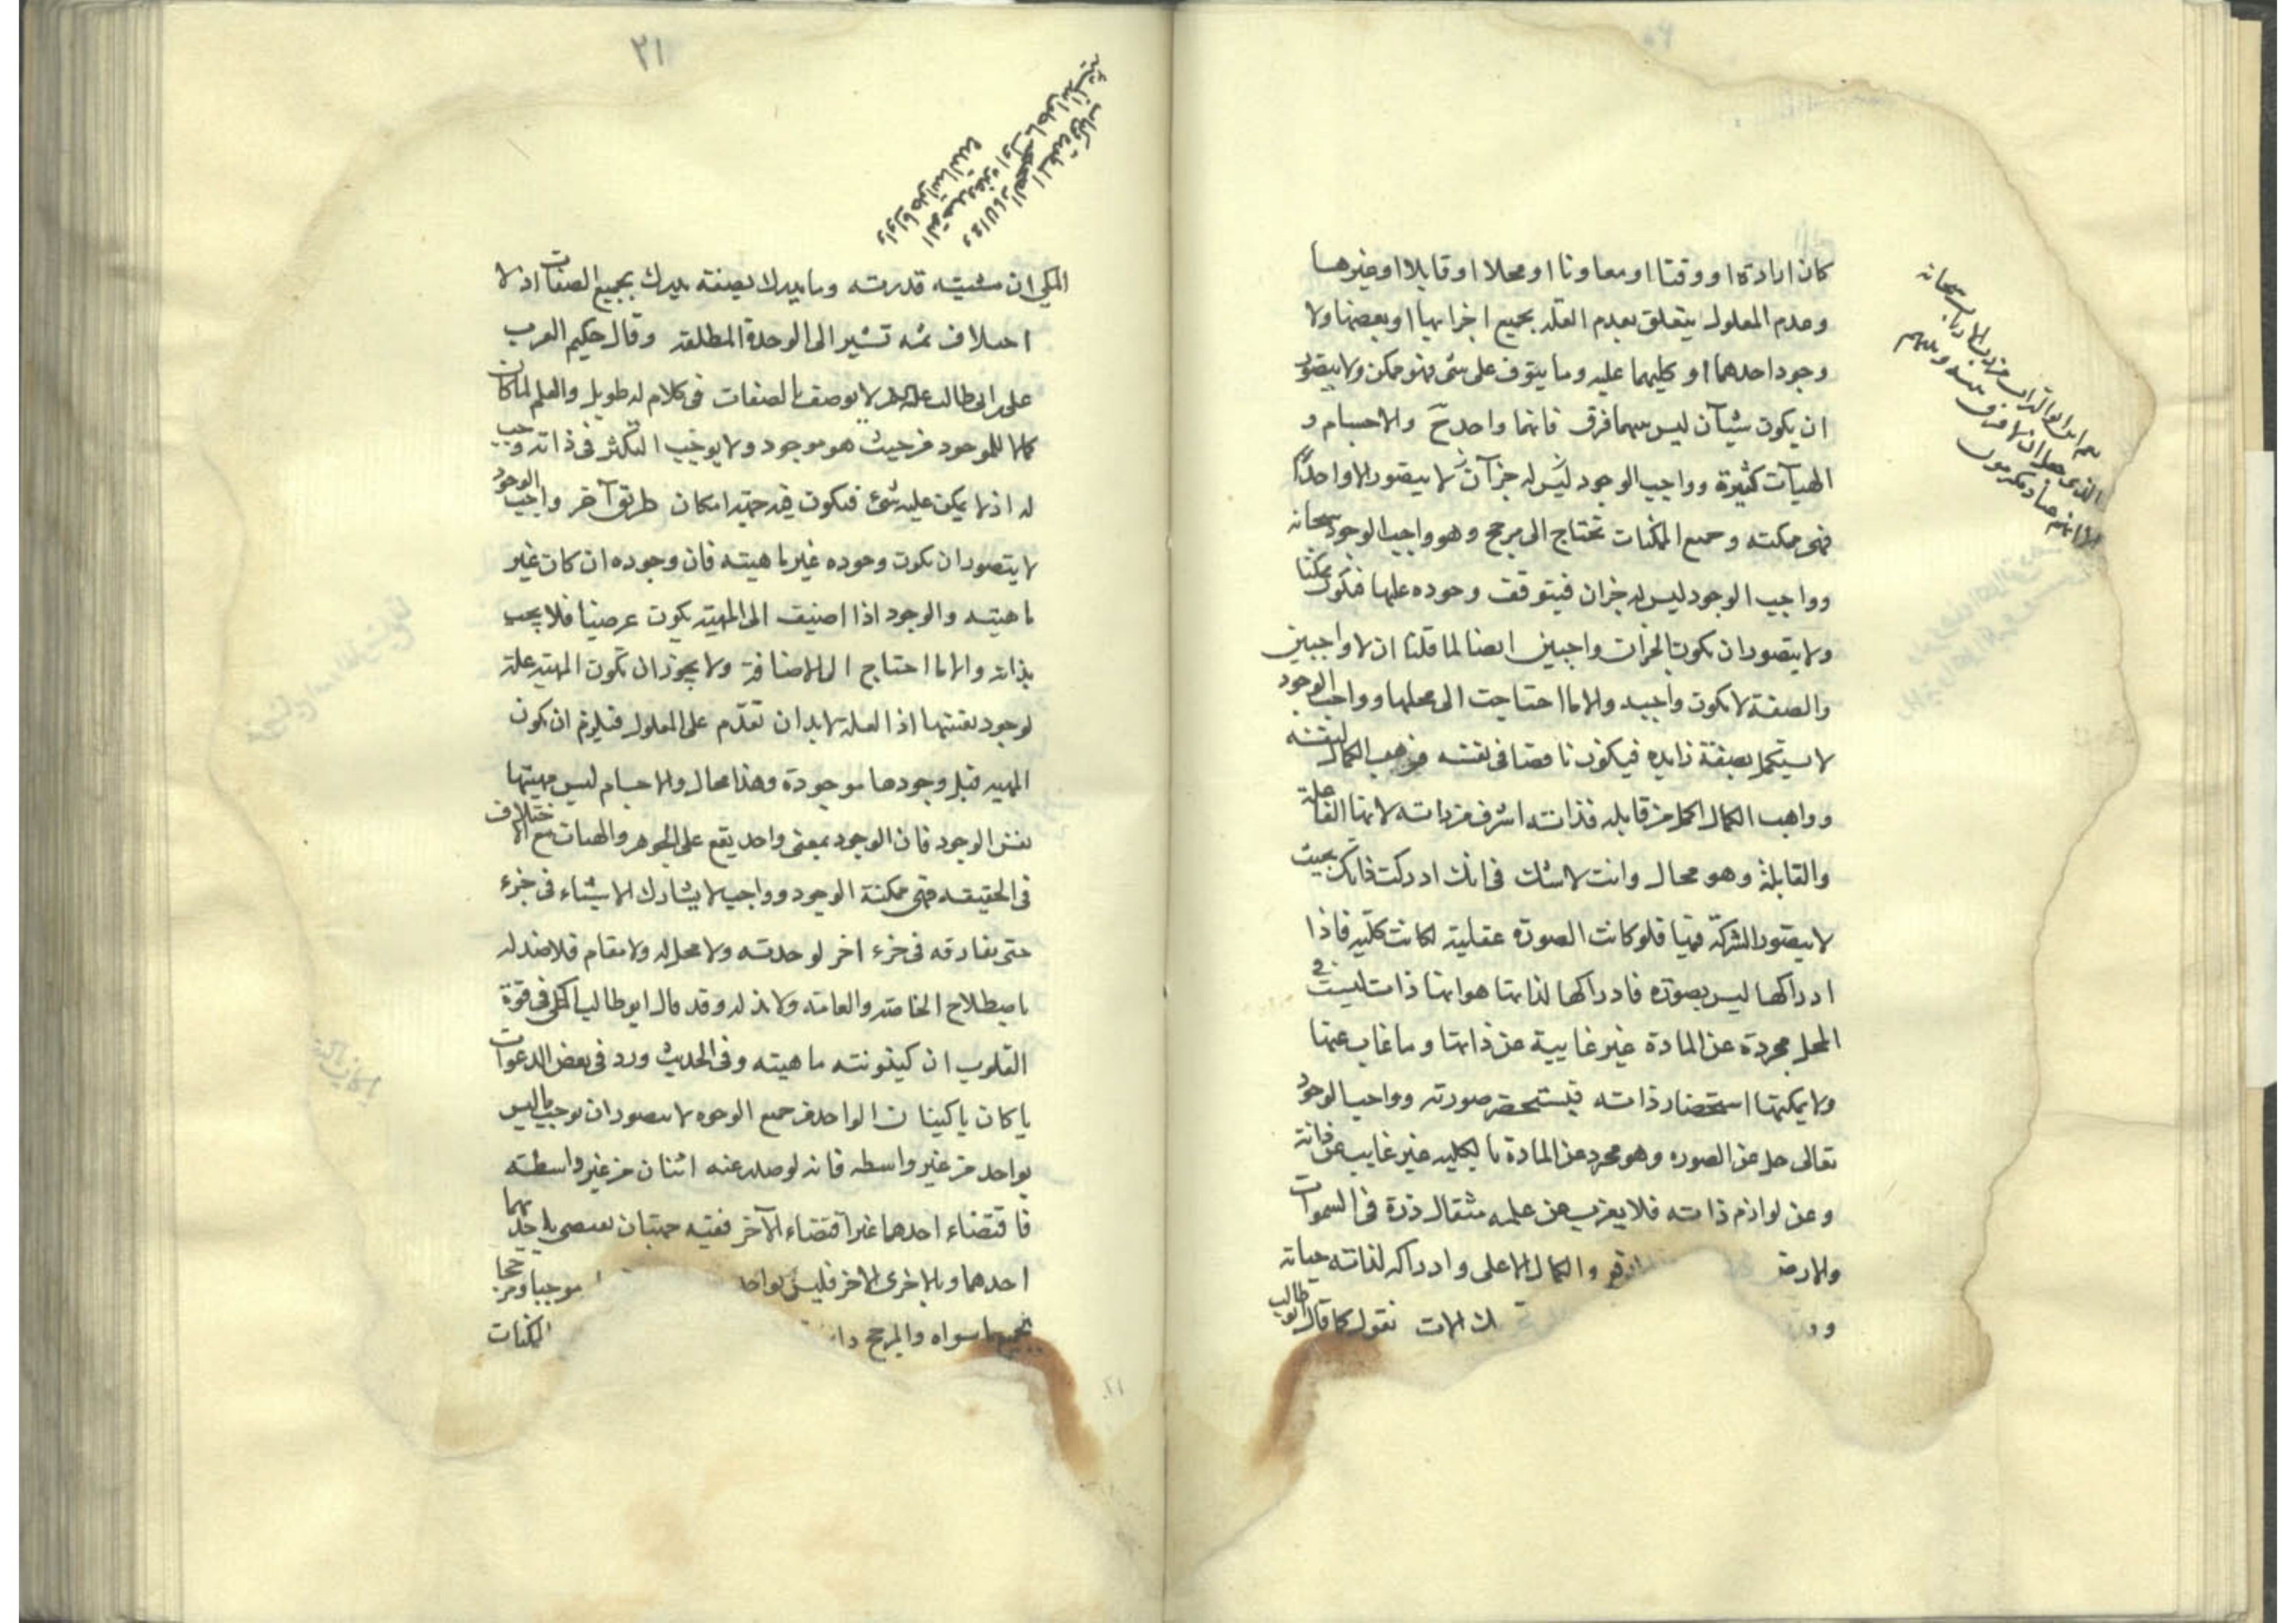 كان ارادة او وقتا او معاونا او محلا او قابلا او غيرها
وعدم المعلول يتعلق بعدم العلة بجميع اجزائها او بعضها ولا
وجود احدهما او كليهما عليه وما يتوقف على شئ فهو ممكن ولا يتصور
ان يكون شيآن ليس بينهما فرق فانهما واحد ح والاجسام و
الهيآت كثيرة وواجب الوجود ليس له جزآن لا يتصور الا واحدًا
فهى ممكنه وجميع الممكنات تحتاج الى مرجح وهو واجب الوجود سبحانه
وواجب الوجود ليس له جزان فيتوقف وجوده عليها فيكون ممكنا
ولا يتصور ان يكون الجزان واجبين ايضا لما قلنا ان لا واجبين
والصفة لا يكون واجبه والا ما احتاجت الى محلها وواجب الوجود
لا يستكمل بصفة زايده فيكون ناقصا فى نفسه فواهب الكمال لنفسه
وواهب الكمال اكمل من قابله فذاته اشرف من ذاته لانها الفاعلة
والقابلة وهو محال وانت لا شك فى انك ادركت ذاتك بحيث
لا يتصور الشركة فيها فلو كانت الصورة عقلية لكانت كلّيه فاذا
ادراكها ليس بصورة فادراكها لذاتها هو انها ذات ليست فى
المحل مجردة عن المادة غير غايبة عن ذاتها وما غاب عنها
ولا يمكنها استحضار ذاته فيستحضر صورته وواجب الوجود
تعالى جل عن الصوره وهو مجرد عن المادة بالكليه غير غايب عن ذاته
وعن لوازم ذاته فلا يعزب عن علمه مثقال ذرة فى السموات
والارض والكمال الاعلى وادراكه لذاته حياته
نقول كما قال ابو طالب
٢١
المكى ان مشيته قدرته وما يدرك بصفة يدرك بجميع الصفات اذ لا
اختلاف ثمه تشير الى الوحدة المطلقه وقال حكيم العرب
على بن ابى طالب لا يوصف بالصفات فى كلام له طويل والعلم لما كان
كمالا للموجود من حيث هو موجود ولا يوجب التكثر فى ذاته وجب
له اذ لا يمكن عليه شئ فيكون فيه جهة امكان طريق آخر واجب الوجود
لا يتصور ان يكون وجوده غير ماهيته فان وجوده ان كان غير
ماهيته والوجود اذا اضيف الى المهيه يكون عرضيا فلا يجب
بذاته والا ما احتاج الى الاضافة ولا يجوز ان تكون المهيه علة
لوجود نفسها اذ العلة لا بد ان تقدّم على المعلول فيلزم ان يكون
المهيه قبل وجودها موجودة وهذا محال والاجسام ليس مهيتها
نفس الوجود فان الوجود بمعنى واحد يقع على الجوهر والهيات مع الاختلاف
فى الحقيقه فهى ممكنة الوجود وواجب لا يشارك الاشياء فى جزء
حتى يفارقه فى جزء اخر لوحدته ولا محل له ولا مقام فلا ضد له
باصطلاح الخاصه والعامة ولا ند له وقد قال ابو طالب المكى فى قوة
القلوب ان كينونته ماهيته وفى الحديث ورد فى بعض الدعوات
يا كان يا كينان الواحد من جميع الوجوه لا يتصور ان يوجب ما ليس
بواحد من غير واسطه فانه لو صدر عنه اثنان من غير واسطته
فاقتضاء احدهما غير اقتضاء الآخر ففيه جهتان يقتضى باحديهما
احدهما وبالاخرى الاخر فليس بواحد موجبا ومرجحا
لجميع ما سواه والمرجح الممكنات